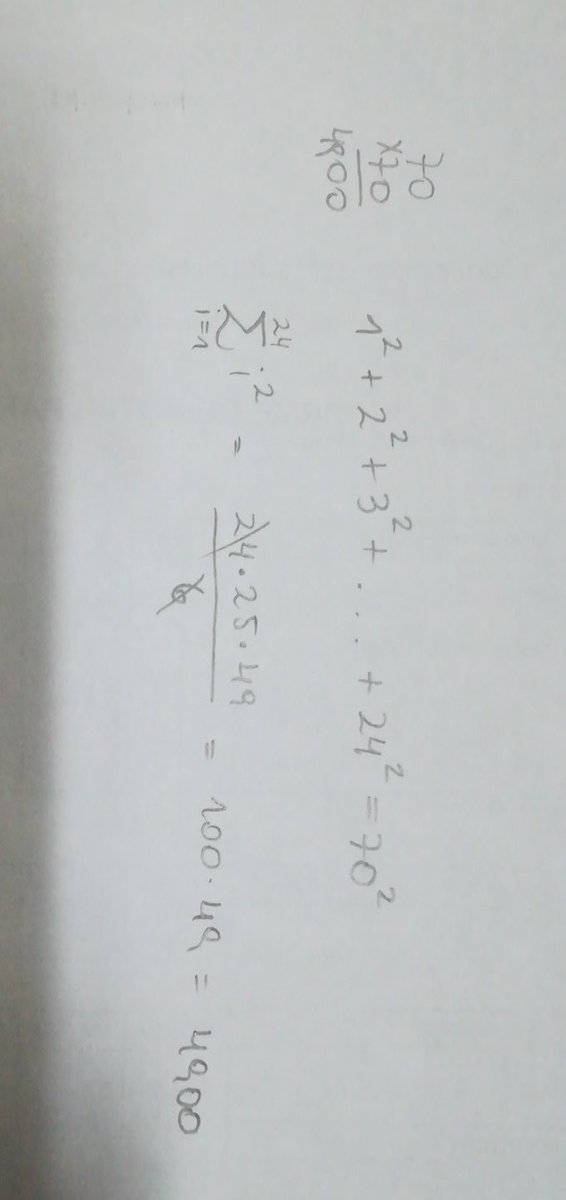 70
x70
4900
1² + 2² + 3² + ... + 24² = 70²
24
∑ i² = 24·25·49 / 6 = 100·49 = 4900
i=1